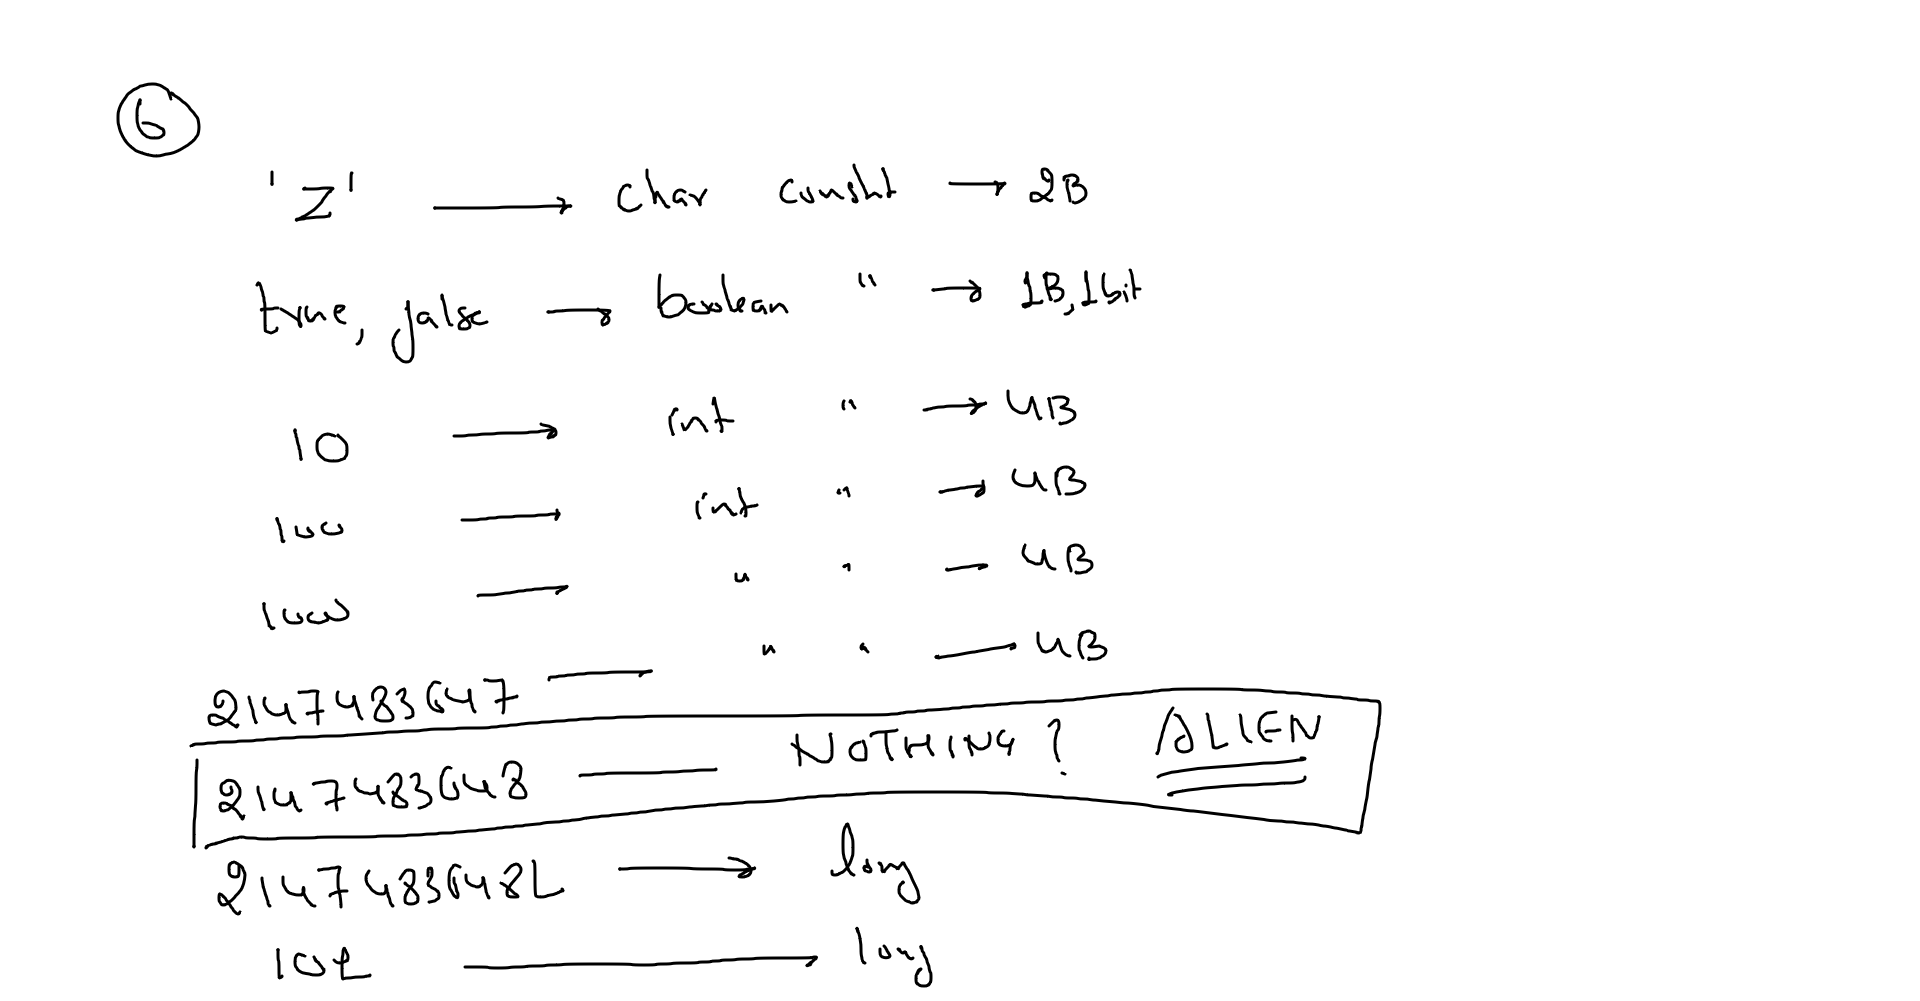 6
'Z' → char const → 2B
true, false → boolean " → 1B, 1bit
10 → int " → 4B
100 → int " → 4B
1000 → " " — 4B
2147483647 — " " — 4B
2147483648 — NOTHING? ALIEN
2147483648L → long
10L → long